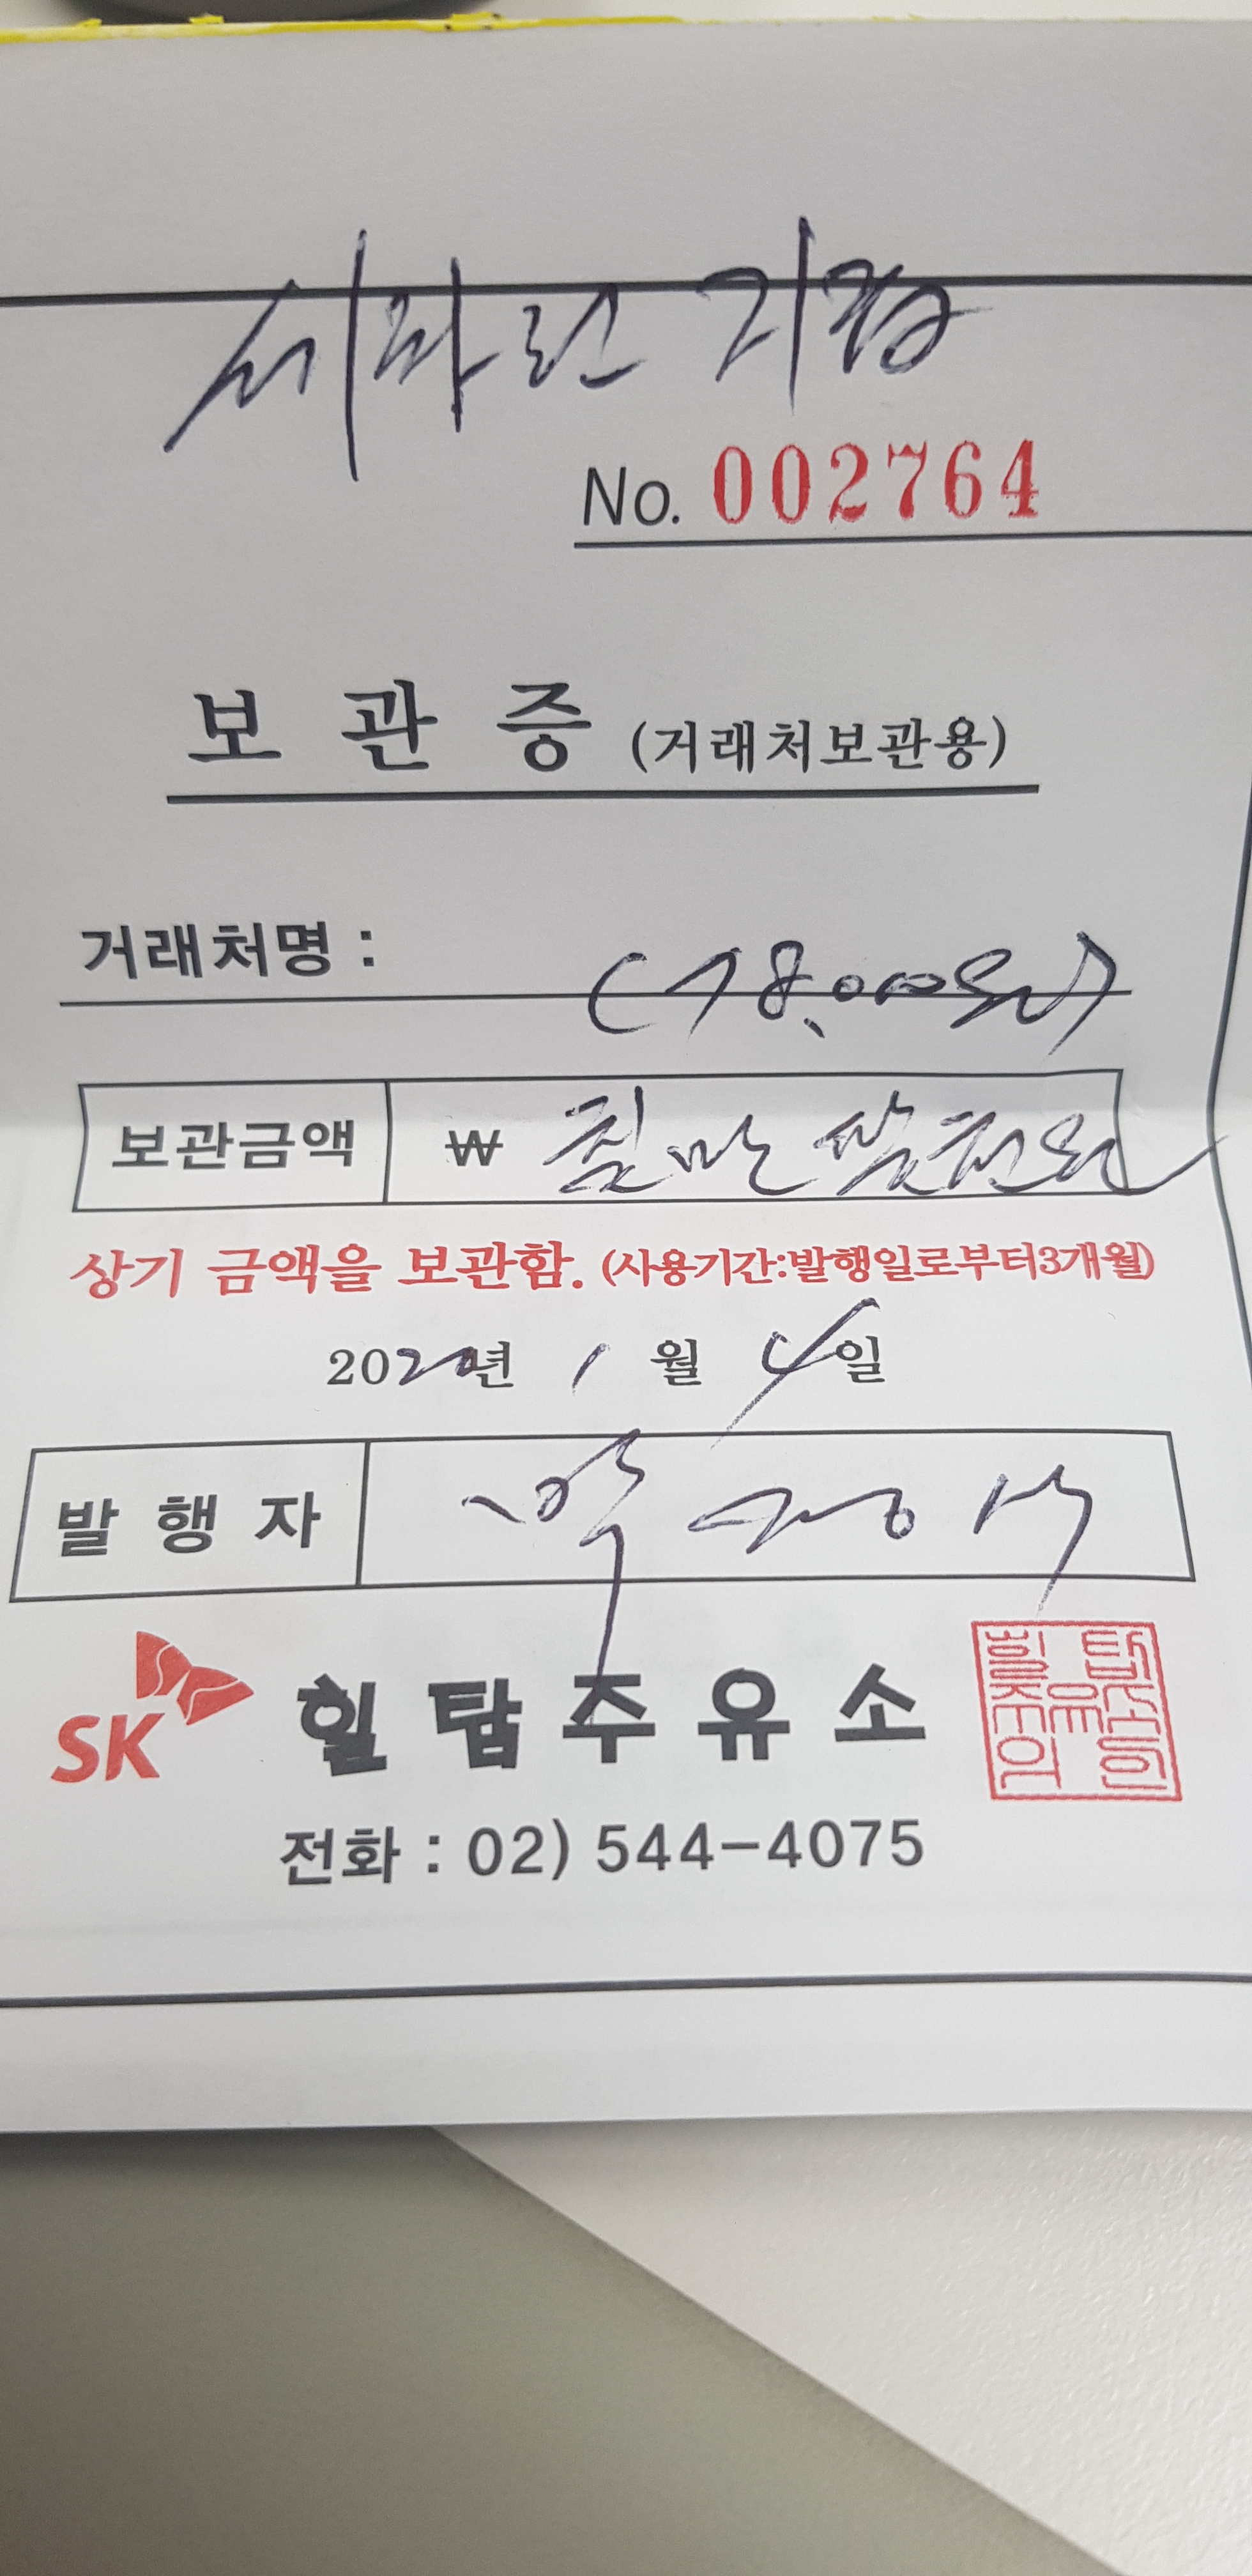 No. 002764
보관증 (거래처보관용)
거래처명 :
(78,000원)
보관금액 ₩ 칠만팔천원
상기 금액을 보관함. (사용기간:발행일로부터3개월)
2020년 1월 4일
발행자
SK 힐탑주유소
전화 : 02) 544-4075